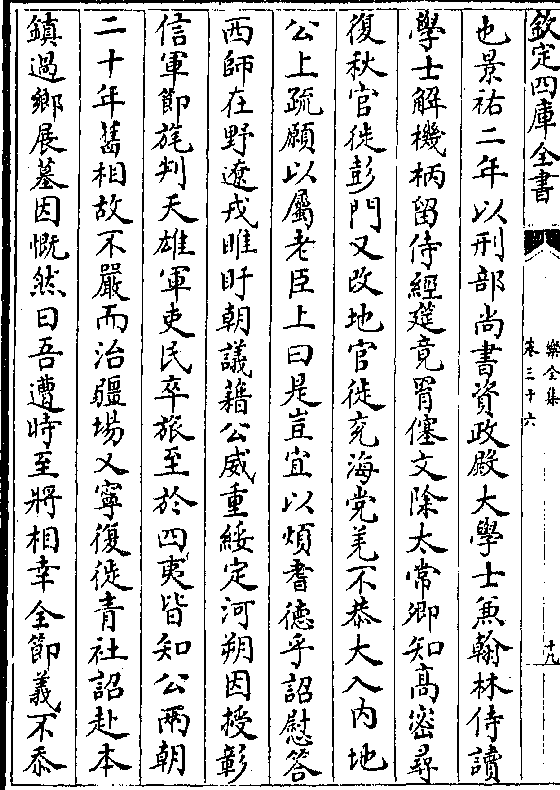 欽定四庫全書
樂全集
卷三十六
十九
也景祐二年以刑部尚書資政殿大學士兼翰林侍讀
學士解機柄留侍經筵竟胥僿文除太常卿知高密尋
復秋官徙彭門又改地官徙兗海党羌不恭大入内地
公上疏願以屬老臣上曰是豈宜以煩耆德乎詔慰答
西師在野遼戎睢盱朝議藉公威重綏定河朔因授彰
信軍節旄判天雄軍吏民卒旅至於四夷皆知公兩朝
二十年舊相故不嚴而治疆場乂寧復徙青社詔赴本
鎮過鄉展墓因慨然曰吾遭時至將相幸全節義不忝